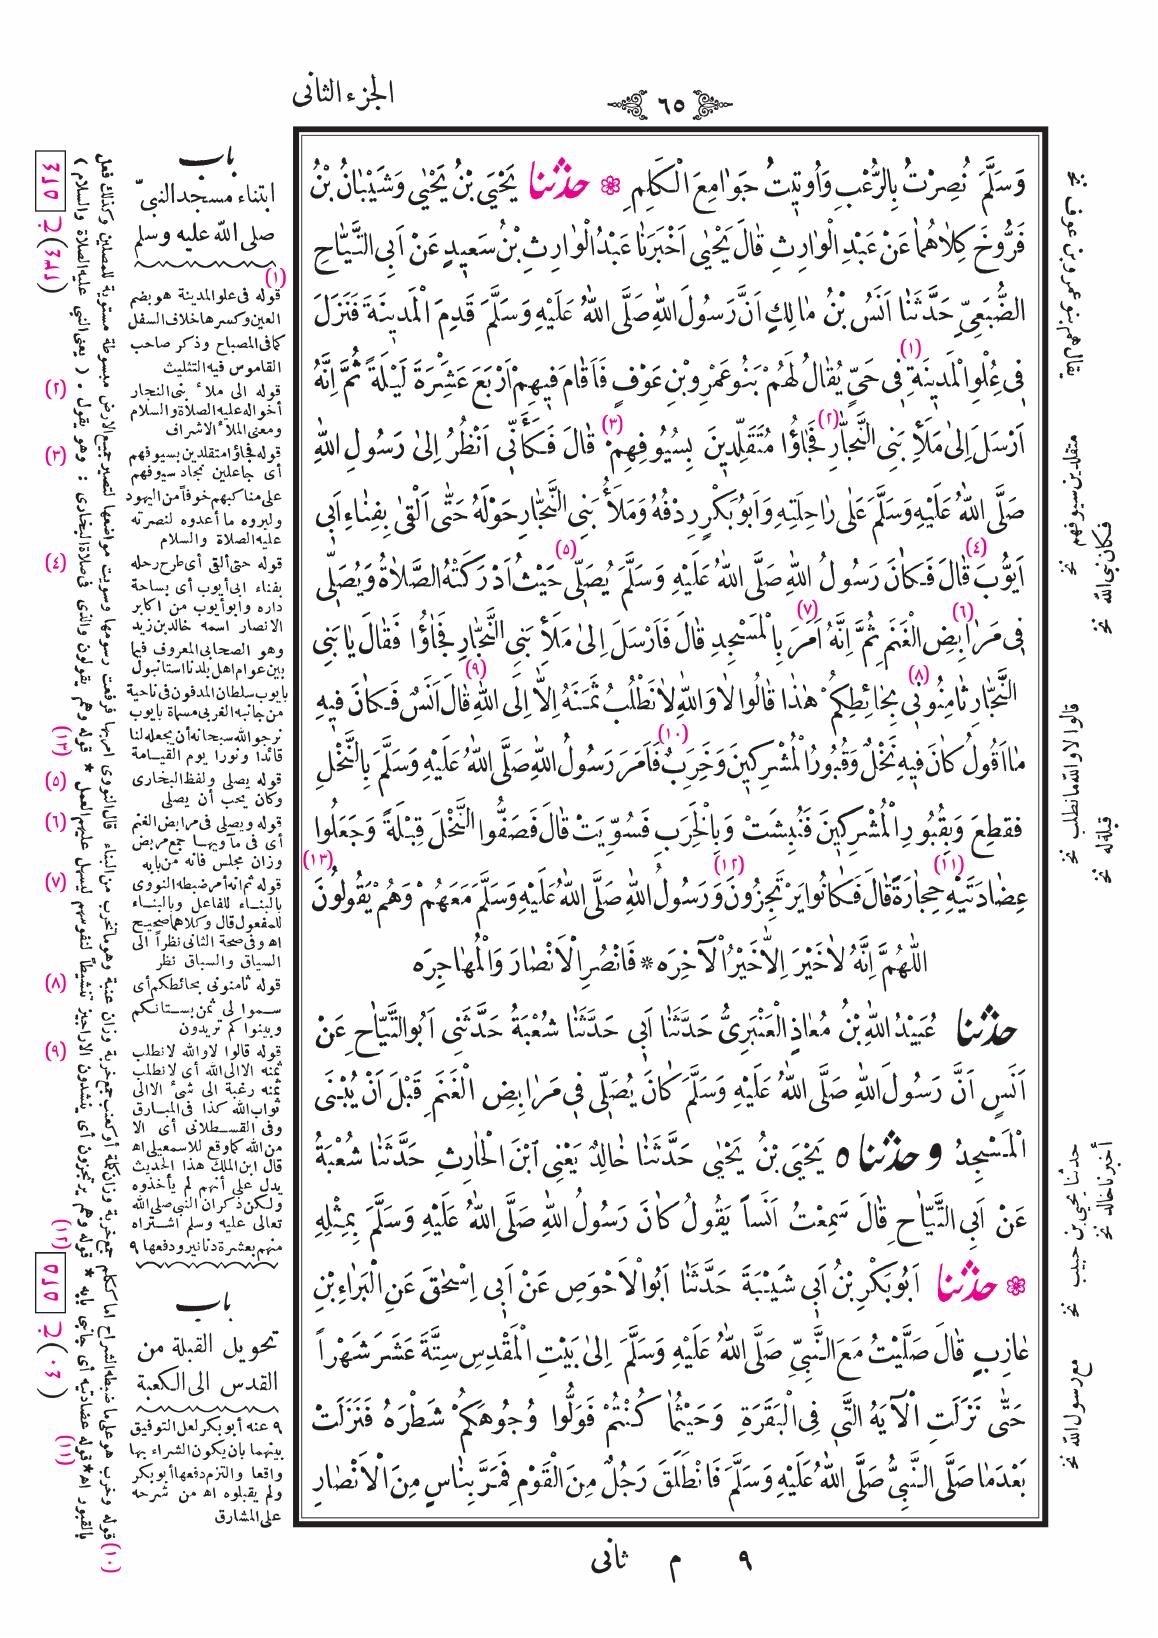 ٦٥
الجزء الثانى
وَسَلَّمَ نُصِرْتُ بِالرُّعْبِ وَأُوتِيتُ جَوَامِعَ الْكَلِمِ ❁ حدثنا يَحْيَى بْنُ يَحْيٰى وَشَيْبَانُ بْنُ
فَرُّوخَ كِلَاهُمَا عَنْ عَبْدِ الْوَارِثِ قَالَ يَحْيٰى اَخْبَرَنَا عَبْدُ الْوَارِثِ بْنُ سَعِيدٍ عَنْ اَبِى التَّيَّاحِ
الضُّبَعِىِّ حَدَّثَنَا اَنَسُ بْنُ مَالِكٍ اَنَّ رَسُولَ اللهِ صَلَّى اللهُ عَلَيْهِ وَسَلَّمَ قَدِمَ الْمَدِينَةَ فَنَزَلَ
فِى عُلْوِ الْمَدِينَةِ (١) فِى حَىٍّ يُقَالُ لَهُمْ بَنُو عَمْرِو بْنِ عَوْفٍ فَاَقَامَ فِيهِمْ اَرْبَعَ عَشْرَةَ لَيْلَةً ثُمَّ اِنَّهُ
اَرْسَلَ اِلىٰ مَلَأِ بَنِى النَّجَّارِ (٢) فَجَاؤُا مُتَقَلِّدِينَ بِسُيُوفِهِمْ (٣) قَالَ فَكَأَنِّى اَنْظُرُ اِلىٰ رَسُولِ اللهِ
صَلَّى اللهُ عَلَيْهِ وَسَلَّمَ عَلىٰ رَاحِلَتِهِ وَاَبُو بَكْرٍ رِدْفُهُ وَمَلَأُ بَنِى النَّجَّارِ حَوْلَهُ حَتّٰى اَلْقٰى بِفِنَاءِ اَبِى
اَيُّوبَ (٤) قَالَ فَكَانَ رَسُولُ اللهِ صَلَّى اللهُ عَلَيْهِ وَسَلَّمَ يُصَلِّى (٥) حَيْثُ اَدْرَكَتْهُ الصَّلَاةُ وَيُصَلِّى
فِى مَرَابِضِ الْغَنَمِ (٦) ثُمَّ اِنَّهُ اَمَرَ (٧) بِالْمَسْجِدِ قَالَ فَاَرْسَلَ اِلىٰ مَلَأِ بَنِى النَّجَّارِ فَجَاؤُا فَقَالَ يَا بَنِى
النَّجَّارِ ثَامِنُونِى بِحَائِطِكُمْ (٨) هٰذَا قَالُوا لَا وَاللهِ لَا نَطْلُبُ ثَمَنَهُ اِلَّا اِلَى اللهِ (٩) قَالَ اَنَسٌ فَكَانَ فِيهِ
مَا اَقُولُ كَانَ فِيهِ نَخْلٌ وَقُبُورُ الْمُشْرِكِينَ وَخَرِبٌ (١٠) فَاَمَرَ رَسُولُ اللهِ صَلَّى اللهُ عَلَيْهِ وَسَلَّمَ بِالنَّخْلِ
فَقُطِعَ وَبِقُبُورِ الْمُشْرِكِينَ فَنُبِشَتْ وَبِالْخَرِبِ فَسُوِّيَتْ قَالَ فَصَفُّوا النَّخْلَ قِبْلَةً وَجَعَلُوا
عِضَادَتَيْهِ (١١) حِجَارَةً قَالَ فَكَانُوا يَرْتَجِزُونَ (١٢) وَرَسُولُ اللهِ صَلَّى اللهُ عَلَيْهِ وَسَلَّمَ مَعَهُمْ وَهُمْ يَقُولُونَ (١٣)
اللّٰهُمَّ اِنَّهُ لَا خَيْرَ اِلَّا خَيْرُ الْآخِرَه * فَانْصُرِ الْاَنْصَارَ وَالْمُهَاجِرَه
حدثنا عُبَيْدُ اللهِ بْنُ مُعَاذٍ الْعَنْبَرِىُّ حَدَّثَنَا اَبِى حَدَّثَنَا شُعْبَةُ حَدَّثَنِى اَبُو التَّيَّاحِ عَنْ
اَنَسٍ اَنَّ رَسُولَ اللهِ صَلَّى اللهُ عَلَيْهِ وَسَلَّمَ كَانَ يُصَلِّى فِى مَرَابِضِ الْغَنَمِ قَبْلَ اَنْ يُبْنَى
الْمَسْجِدُ وحدثنا ٥ يَحْيَى بْنُ يَحْيٰى حَدَّثَنَا خَالِدٌ يَعْنِى ابْنَ الْحَارِثِ حَدَّثَنَا شُعْبَةُ
عَنْ اَبِى التَّيَّاحِ قَالَ سَمِعْتُ اَنَساً يَقُولُ كَانَ رَسُولُ اللهِ صَلَّى اللهُ عَلَيْهِ وَسَلَّمَ بِمِثْلِهِ
❁ حدثنا اَبُو بَكْرِ بْنُ اَبِى شَيْبَةَ حَدَّثَنَا اَبُو الْاَحْوَصِ عَنْ اَبِى اِسْحٰقَ عَنِ الْبَرَاءِ بْنِ
عَازِبٍ قَالَ صَلَّيْتُ مَعَ النَّبِىِّ صَلَّى اللهُ عَلَيْهِ وَسَلَّمَ اِلىٰ بَيْتِ الْمَقْدِسِ سِتَّةَ عَشَرَ شَهْراً
حَتّٰى نَزَلَتِ الْآيَةُ الَّتِى فِى الْبَقَرَةِ وَحَيْثُمَا كُنْتُمْ فَوَلُّوا وُجُوهَكُمْ شَطْرَهُ فَنَزَلَتْ
بَعْدَمَا صَلَّى النَّبِىُّ صَلَّى اللهُ عَلَيْهِ وَسَلَّمَ فَانْطَلَقَ رَجُلٌ مِنَ الْقَوْمِ فَمَرَّ بِنَاسٍ مِنَ الْاَنْصَارِ
٩ م ثانى
باب
ابتناء مسجد النبىّ
صلى الله عليه وسلم
(١)
قوله فى علو المدينة هو بضم
العين وكسرها خلاف السفل
كما فى المصباح وذكر صاحب
القاموس فيه التثليث
(٢) قوله الى ملأ بنى النجار
أخواله عليه الصلاة والسلام
ومعنى الملأ الاشراف
(٣) قوله فجاؤا متقلدين بسيوفهم
أى جاعلين نجاد سيوفهم
على مناكبهم خوفاً من اليهود
وليروه ما أعدوه لنصرته
عليه الصلاة والسلام
(٤) قوله حتى ألقى أى طرح رحله
بفناء ابى أيوب أى بساحة
داره وابو أيوب من اكابر
الانصار اسمه خالد بن زيد
وهو الصحابى المعروف فيما
بين عوام اهل بلدنا استانبول
بايوب سلطان المدفون فى ناحية
من جانبه الغربى مسماة بايوب
نرجو الله سبحانه أن يجعله لنا
قائدا ونورا يوم القيامة
(٥) قوله يصلى ولفظ البخارى
وكان يحب أن يصلى
(٦) قوله ويصلى فى مرابض الغنم
أى فى مآويها جمع مربض
وزان مجلس فانه من بابه
(٧) قوله ثم انه أمر ضبطه النووى
بالبناء للفاعل وبالبناء
للمفعول قال وكلاهما صحيح
اه وفى صحة الثانى نظراً الى
السياق والسباق نظر
(٨) قوله ثامنونى بحائطكم أى
سموا لى ثمن بستانكم
وبينوا كم تريدون
(٩) قوله قالوا لا والله لا نطلب
ثمنه الا الى الله أى لا نطلب
ثمنه رغبة الى شىء الا الى
ثواب الله كذا فى المبارق
وفى القسطلانى أى الا
من الله كما وقع للاسمعيلى اه
قال ابن الملك هذا الحديث
يدل على أنهم لم يأخذوه
ولكن ذكر ان النبى صلى الله
تعالى عليه وسلم اشتراه
منهم بعشرة دنانير ودفعها ٩
باب
تحويل القبلة من
القدس الى الكعبة
٩ عنه أبو بكر لعل التوفيق
بينهما بان يكون الشراء بها
واقعا والتزم دفعها أبو بكر
ولم يقبلوه اه من شرحه
على المشارق
(١٠) قوله وخرب هو على ما ضبطه الشراح اما ككلم جمع خربة وزان كلمة أو كعنب جمع خربة وزان عنبة وهو ما تخرب من البناء قال النووى امر بها فرفعت رسومها وسويت مواضعها لتصير جميع الارض مبسوطة مستوية للمصلين وكذلك فعل
بالقبور اه * (١١) قوله عضادتيه أى جانبى بابه * (١٢) قوله وهم يرتجزون أى ينشدون الاراجيز تنشيطاً لنفوسهم ليسهل عليهم العمل * (١٣) قوله وهم يقولون والذى فى صلاة البخارى : وهو يقول . ( يعنى النبى عليه الصلاة والسلام )
يقال لهم بنو عمرو بن عوف نخ
متقلدين سيوفهم نخ
فكان نبى الله نخ
قالوا لا والله ما نطلب نخ
قبلة له نخ
حدثنا يحيى بن حبيب نخ
أخبرنا خالد نخ
مع رسول الله نخ